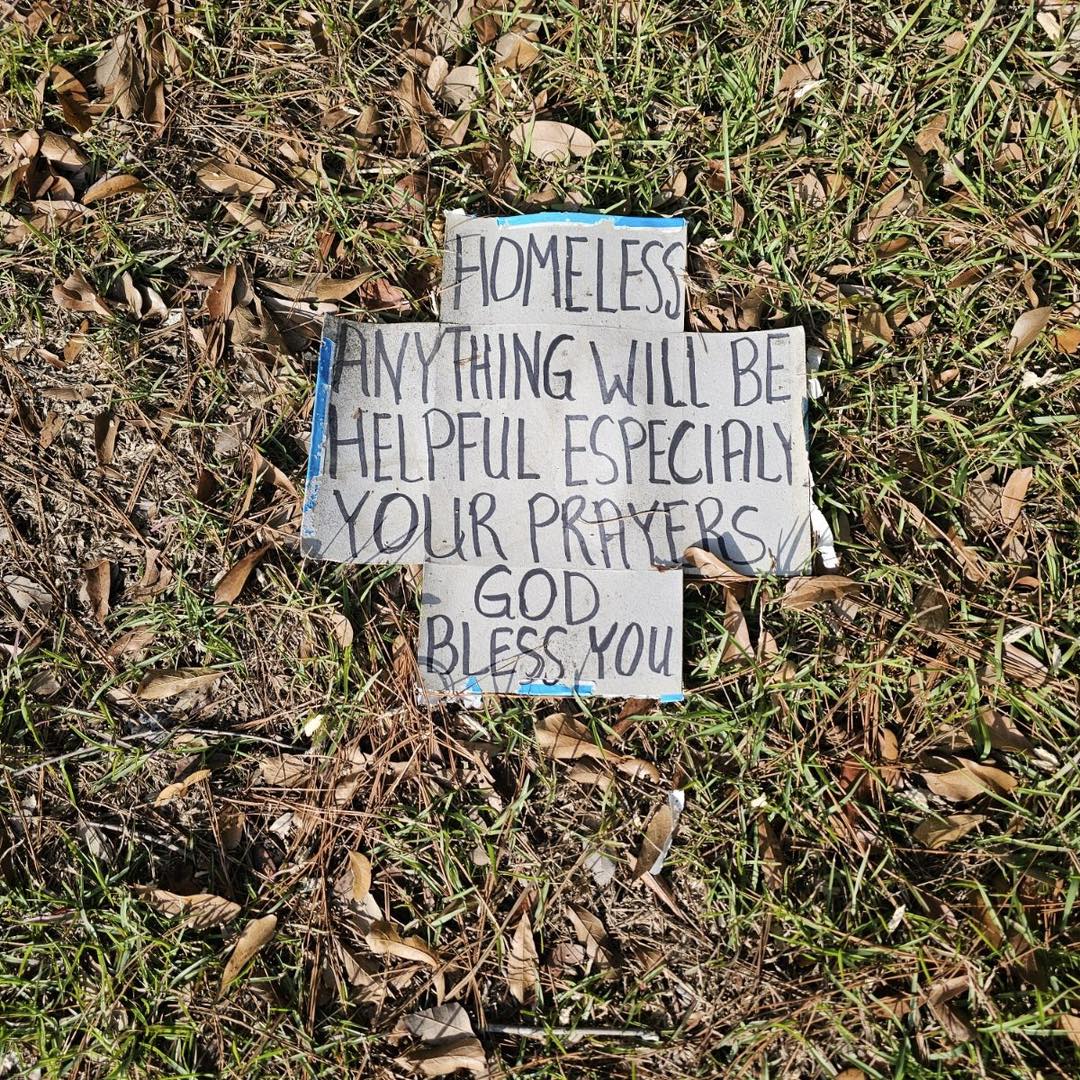 HOMELESS
ANYTHING WILL BE
HELPFUL ESPECIALY
YOUR PRAYERS
GOD
BLESS YOU